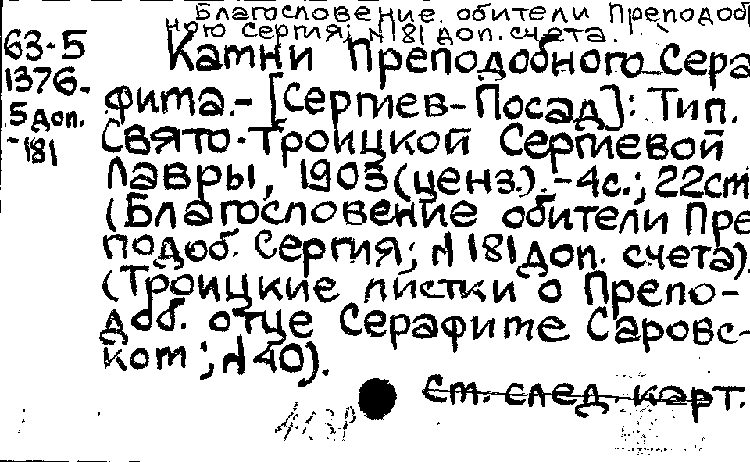 Благословение обители Преподоб
ного Сергия; N 181 доп. счета.
63-5
1376-
5 доп.
-181
Камни Преподобного Сера
фима.- [Сергиев-Посад]: Тип.
Свято-Троицкой Сергиевой
Лавры, 1903 (ценз.).-4с.; 22см
(Благословение обители Пре
подоб. Сергия; N 181 доп. счета).
(Троицкие листки о Препо-
доб. отце Серафиме Саровс-
ком; N 40).
См. след. карт.